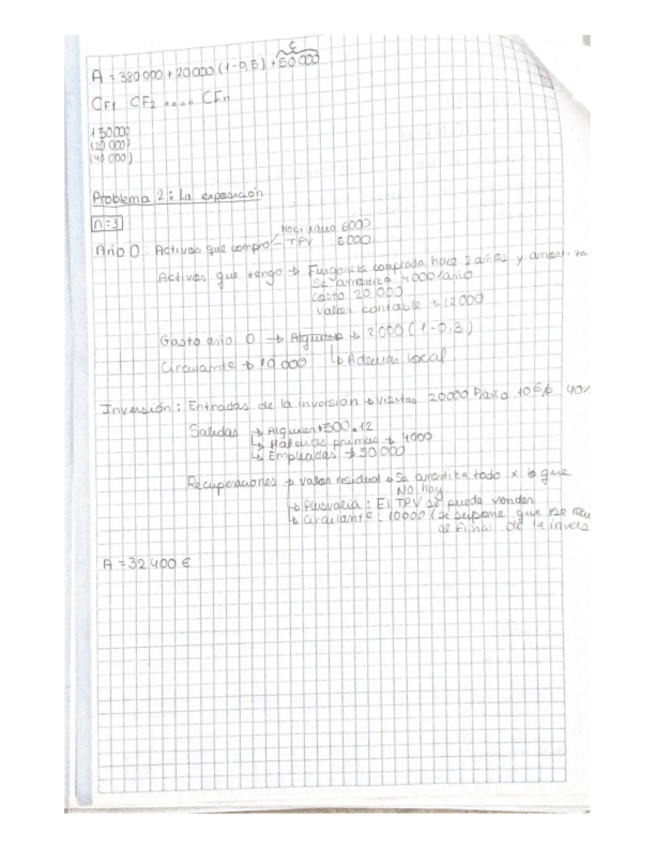 C
A = 380000 + 20000 (1-0,5) + 50000
CF1 CF2 .... CFn
150000
(20 000)
(40 000)
Problema 2: La exposición
n=3
Maquinaria 6000
Año 0: Activos que compro TPV 6000
Activos que tengo → Furgoneta comprada hace 2 años y amortiza
Se amortiza 4000/año
Costo 20 000
Valor contable → 12000
Gasto año 0 → Alquiler → 2000 (1-0,3)
Circulante → 10 000 ↳ Adecuar local
Inversión: Entradas de la inversión → Visitas 20000 P/año 10€/p 40%
Salidas → Alquiler 500.12
↳ Materias primas → 4000
↳ Empleadas → 30 000
Recuperaciones → Valor residual → Se amortiza todo x lo que
NO hay
↳ Plusvalía: El TPV se puede vender
↳ Circulante: 10000 (se supone que se
al final de la invers
A = 32 400 €